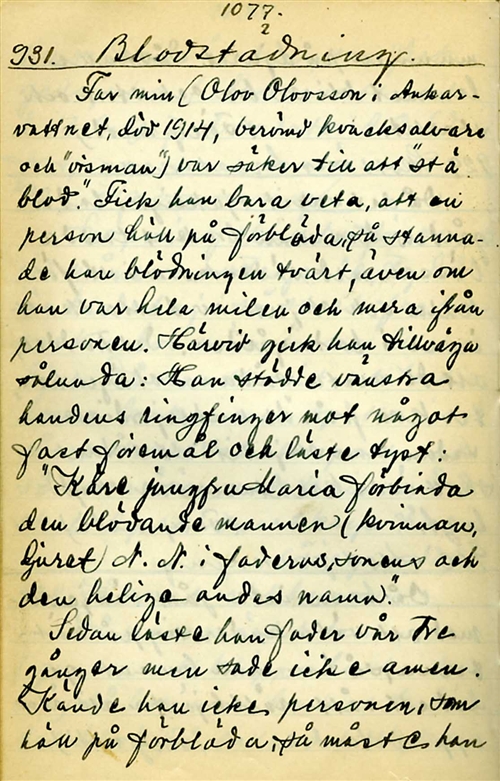 1077.
2
931. Blodstädning.
Far min (Olov Olovsson i Ankar-
vattnet, död 1914, berömd kvacksalvare
och "visman") var säker till att "stä
blod". Fick han bara veta, att en
person höll på förblöda, så stanna-
de han blödningen tvärt, även om
han var hela milen och mera ifrån
personen. Härvid gick han tillväga
sålunda: Han stödde vänstra
handens ringfinger mot något
fast föremål och läste tyst:
"Käre jungfru Maria förbinda
den blödande mannen (kvinnan,
djuret) N. N. i faderns, sonens och
den helige andes namn".
Sedan läste han fader vår tre
gånger men sade icke amen.
Kände han icke personen, som
höll på förblöda, så måste han